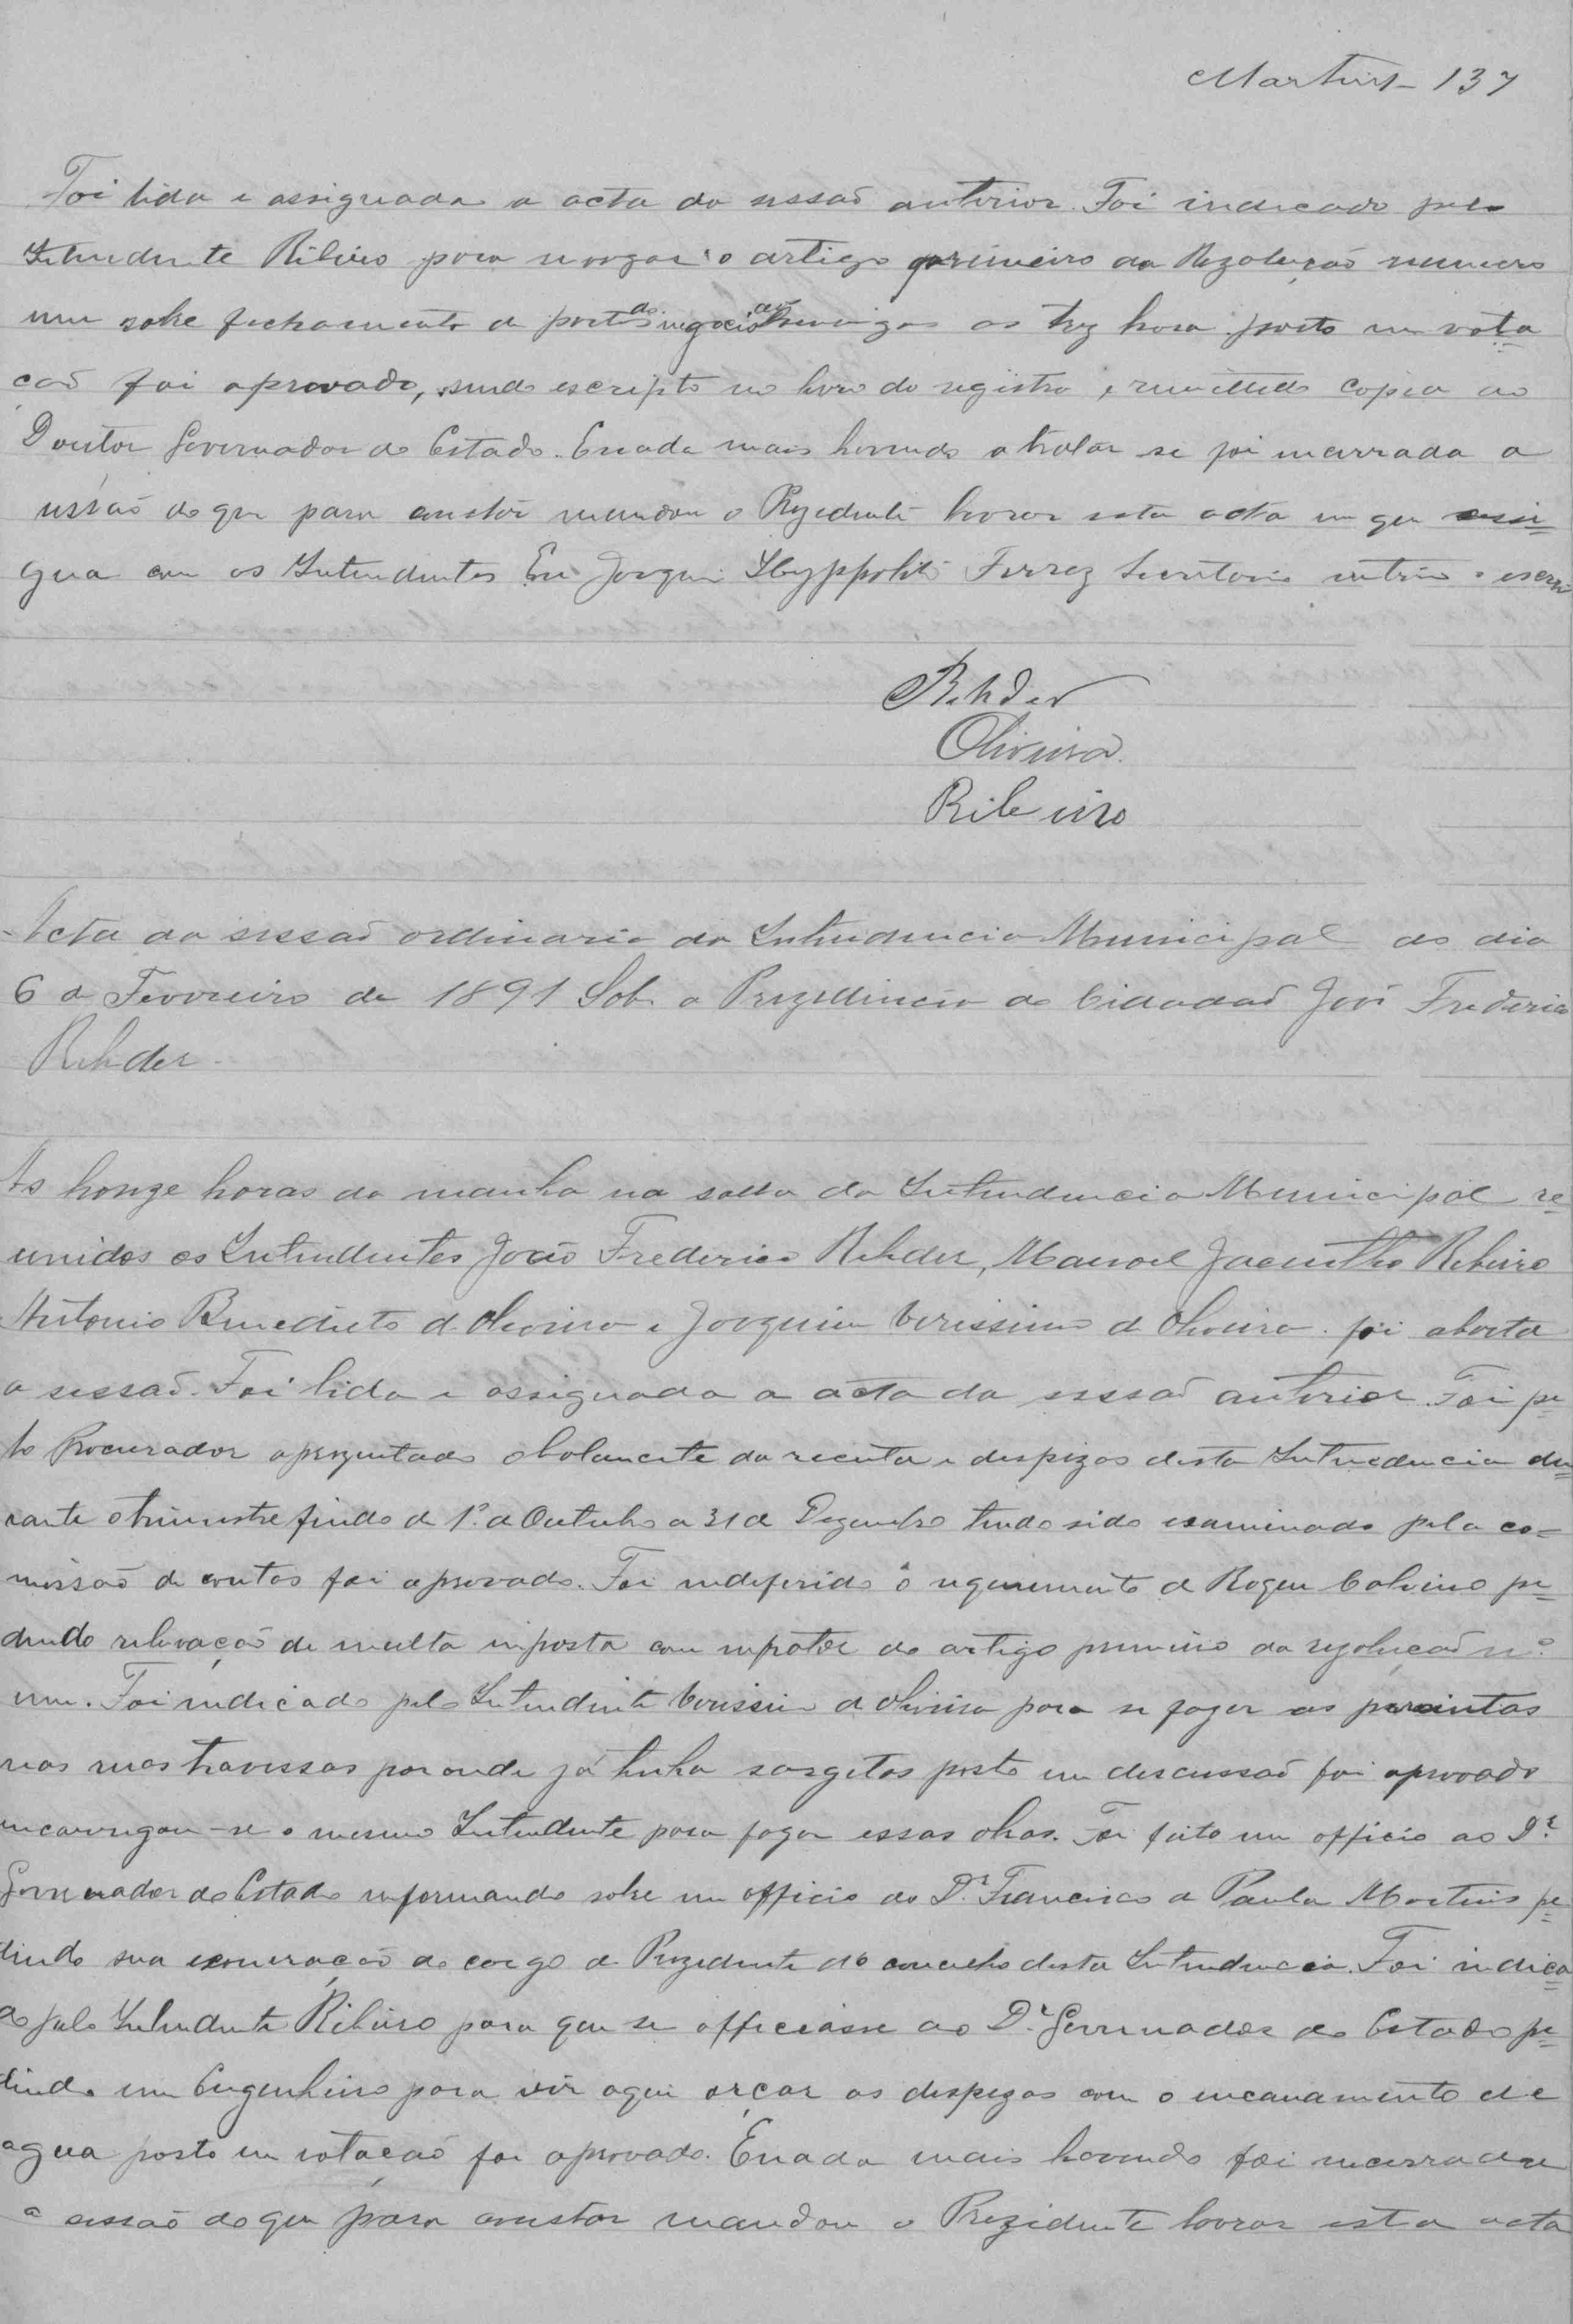 Martins 137
Foi lida e assignada a acta da sessaõ anterior. Foi indicado pelo
Intendente Ribeiro para revogar o artigo primeiro da Rezoluçaõ numero
um sobre fechamento de portas do negocio aos Domingos as trez hora posto em vota
çaõ foi aprovado, sendo escripto no livro do registro e remettido copia ao
Doutor Governador do Estado. E nada mais havendo a tratar se foi incerrada a
sessaõ do que para constár mandou o Prezidente lavrar esta acta em que assi=
gna com os Intendentes Eu Joaquim Hyppolito Ferraz Secretario interino o escrevi
Rehder
Oliveira
Ribeiro
Acta da sessaõ ordinaria da Intendencia Municipal do dia
6 de Fevreiro de 1891 Sob a Prezidencia do Cidadaõ João Frederico
Rehder
As honze horas da manha na salla da Intendencia Municipal re=
unidos os Intendentes João Frederico Rehder, Manoel Jacintho Ribeiro
Antonio Benedicto d Oliveira e Joaquim Verissimo d Oliveira. foi aberta
a sessaõ. Foi lida e assignada a acta da sessaõ anterior. Foi pe=
lo Procurador aprezentado o balancete da receita e despezas desta Intendencia du=
rante o trimestre findo de 1º de Outubro a 31 de Dezembro tendo sido examinado pela co=
missaõ de contas foi aprovado. Foi indeferido o requerimento de Roque Calvino pe=
dindo relevaçaõ de multa imposta com infrator do artigo primeiro da rezoluçaõ nº
um. Foi indicado pelo Intendente Verissimo d Oliveira para se fazer as
nas ruas travessas por onde já tinha sargetas posto em discussaõ foi aprovado
encarregou-se o mesmo Intendente para fazer essas obras. Foi feito um officio ao Dr
Governador do Estado informando sobre um officio do Dr Francisco de Paula Martins pe=
dindo sua exoneraçaõ do cargo de Prezidente do concelho desta Intendencia. Foi indica=
do pelo Intendente Ribeiro para que se officiasse ao Dr Governador do Estado pe=
dindo um Engenheiro para vir aqui orçar as despezas com o encanamento de
agua posto em votaçaõ foi aprovado. E nada mais havendo foi incerrada
a sessaõ do que para constar mandou o Prezidente lavrar esta acta